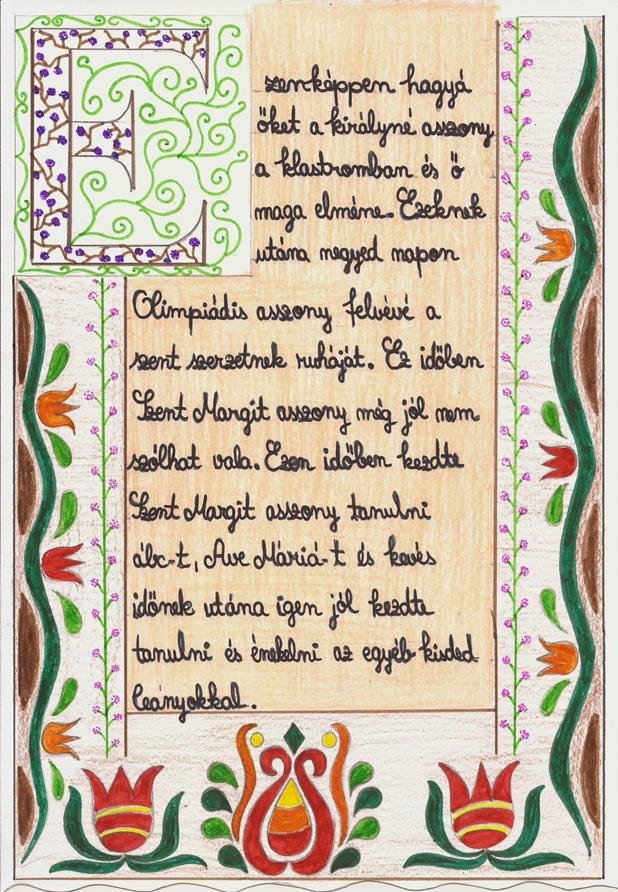 Ezenképpen hagyá
őket a királyné asszony
a klastromban és ő
maga elméne. Ezeknek
utána negyed napon
Olimpiádis asszony felvévé a
szent szerzetnek ruháját. Ez időben
Szent Margit asszony még jól nem
szólhat vala. Ezen időben kezdte
Szent Margit asszony tanulni
ábc-t, Ave Máriá-t és kevés
időnek utána igen jól kezdte
tanulni és énekelni az egyéb kisded
leányokkal.